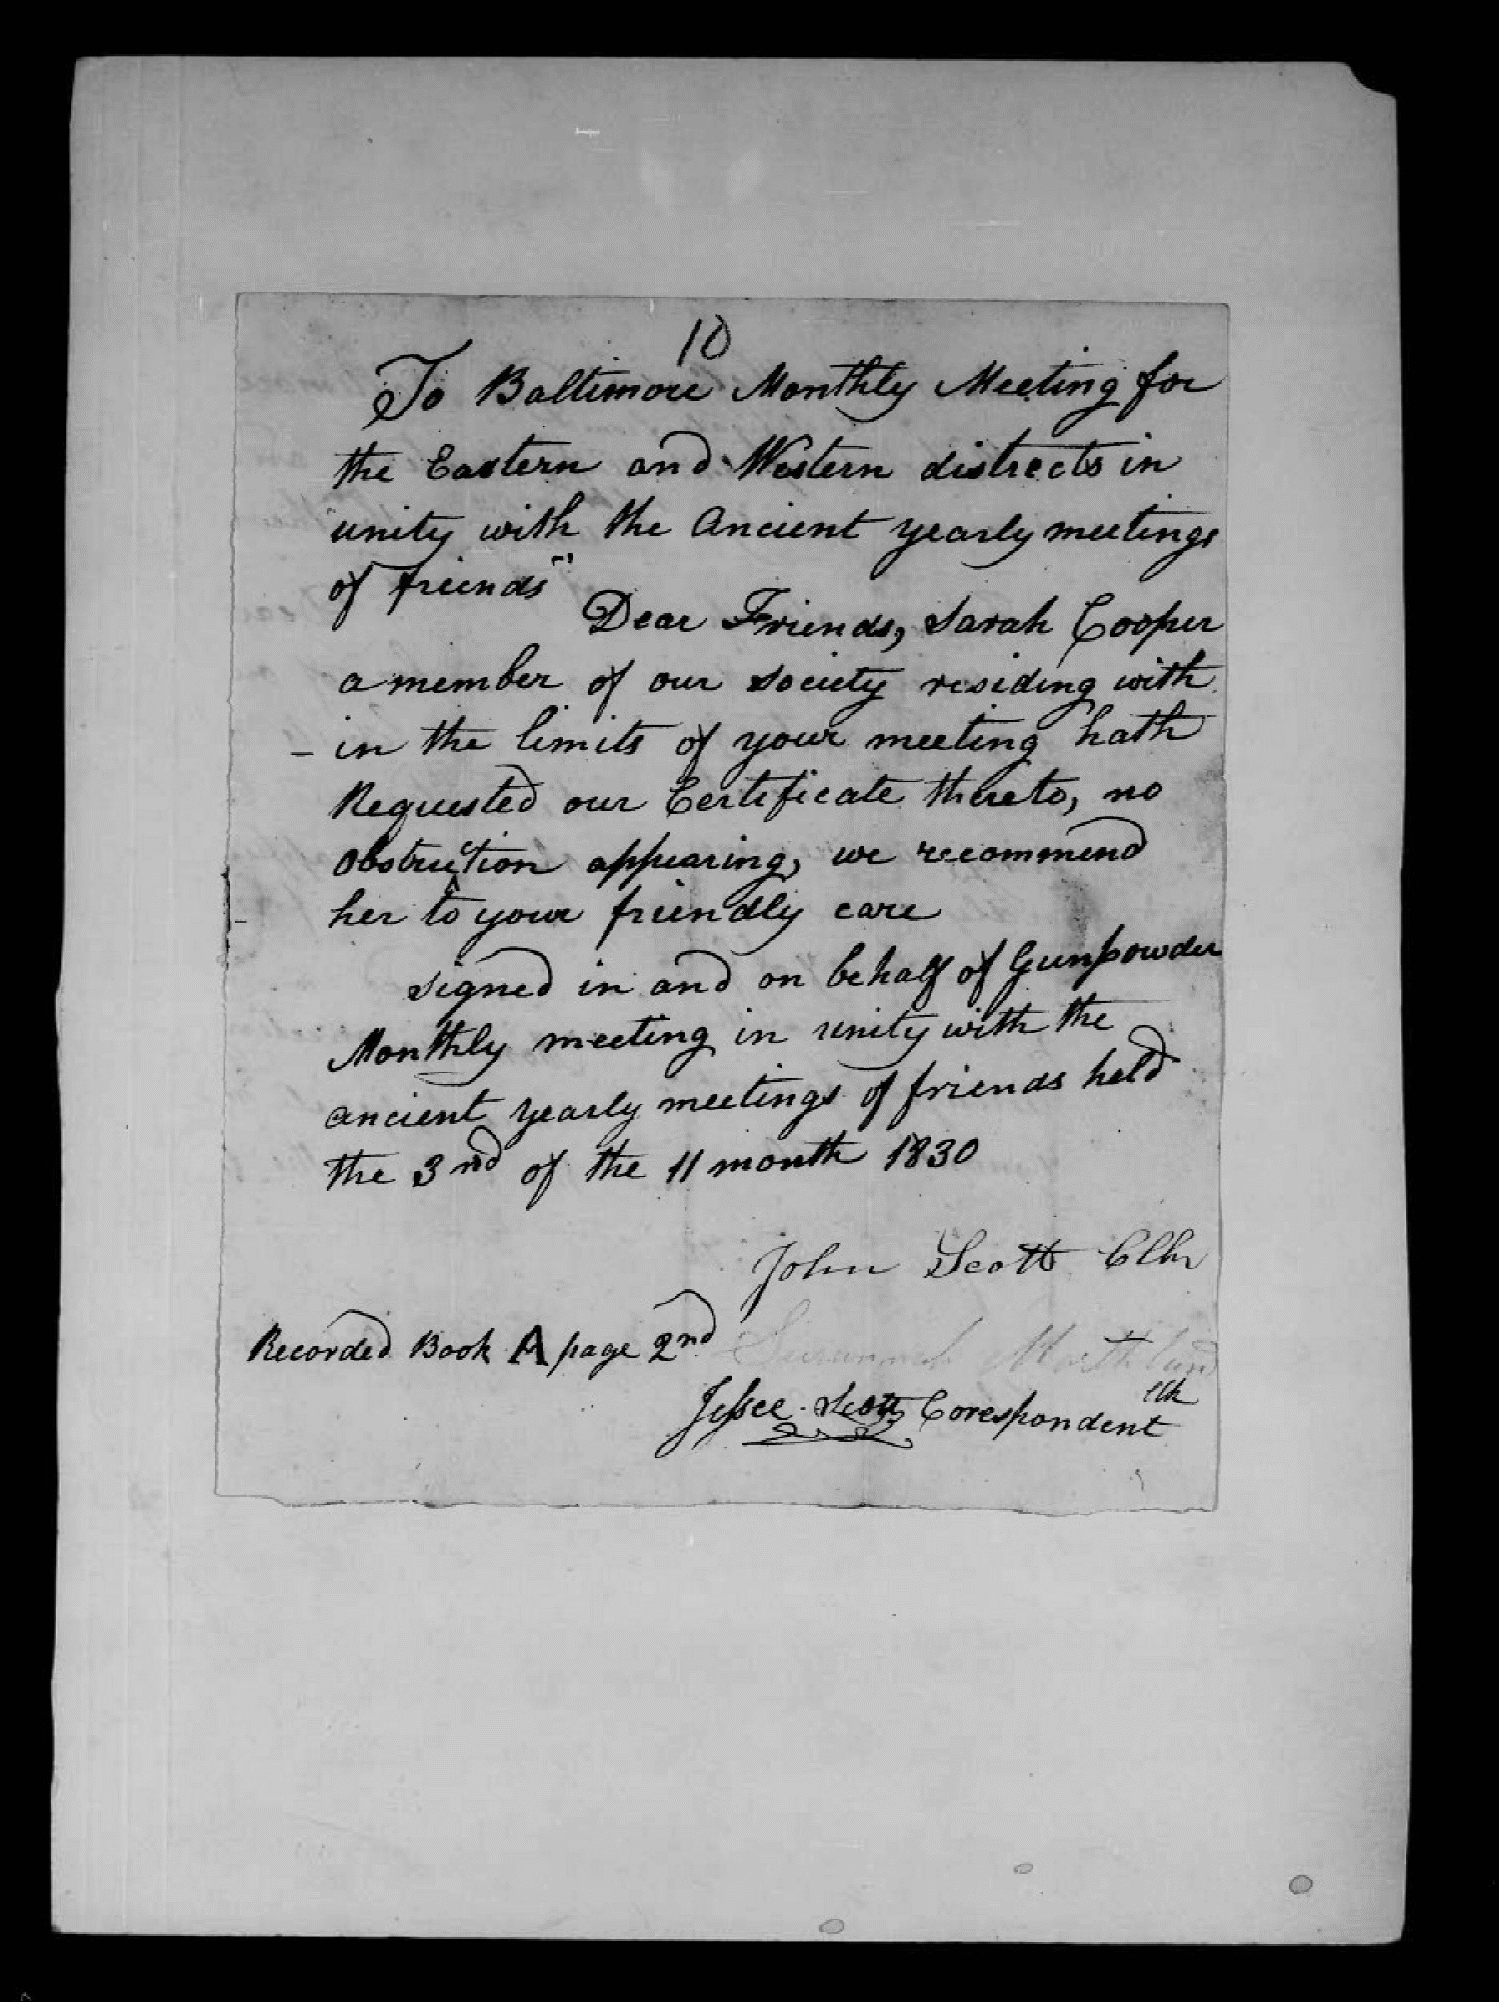 10
To Baltimore Monthly Meeting for
the Eastern and Western districts in
"unity with the Ancient yearly meetings
of friends"
Dear Friends, Sarah Cooper
a member of our society residing with
- in the limits of your meeting hath
Requested our Certificate thereto, no
obstruction appearing, we recommend
her to your friendly care
signed in and on behalf of Gunpowder
Monthly meeting in unity with the
ancient yearly meetings of friends held
the 3nd of the 11 month 1830
John Scott Clk
Recorded Book A page 2nd
Susannah
clk
Jessee Scott Corespondent